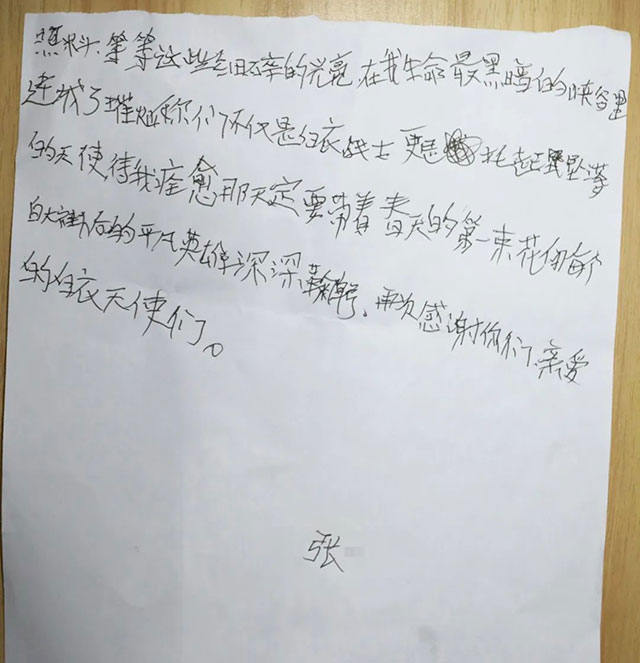 点头、等等这些细碎的光亮,在我生命最黑暗的峡谷里
连成了璀灿你们不仅是白衣战士更是托起坠落
的天使待我痊愈那天定要带着春天的第一束花向每个
白大褂后的平凡英雄深深鞠躬、再次感谢你们、亲爱
的白衣天使们。
张